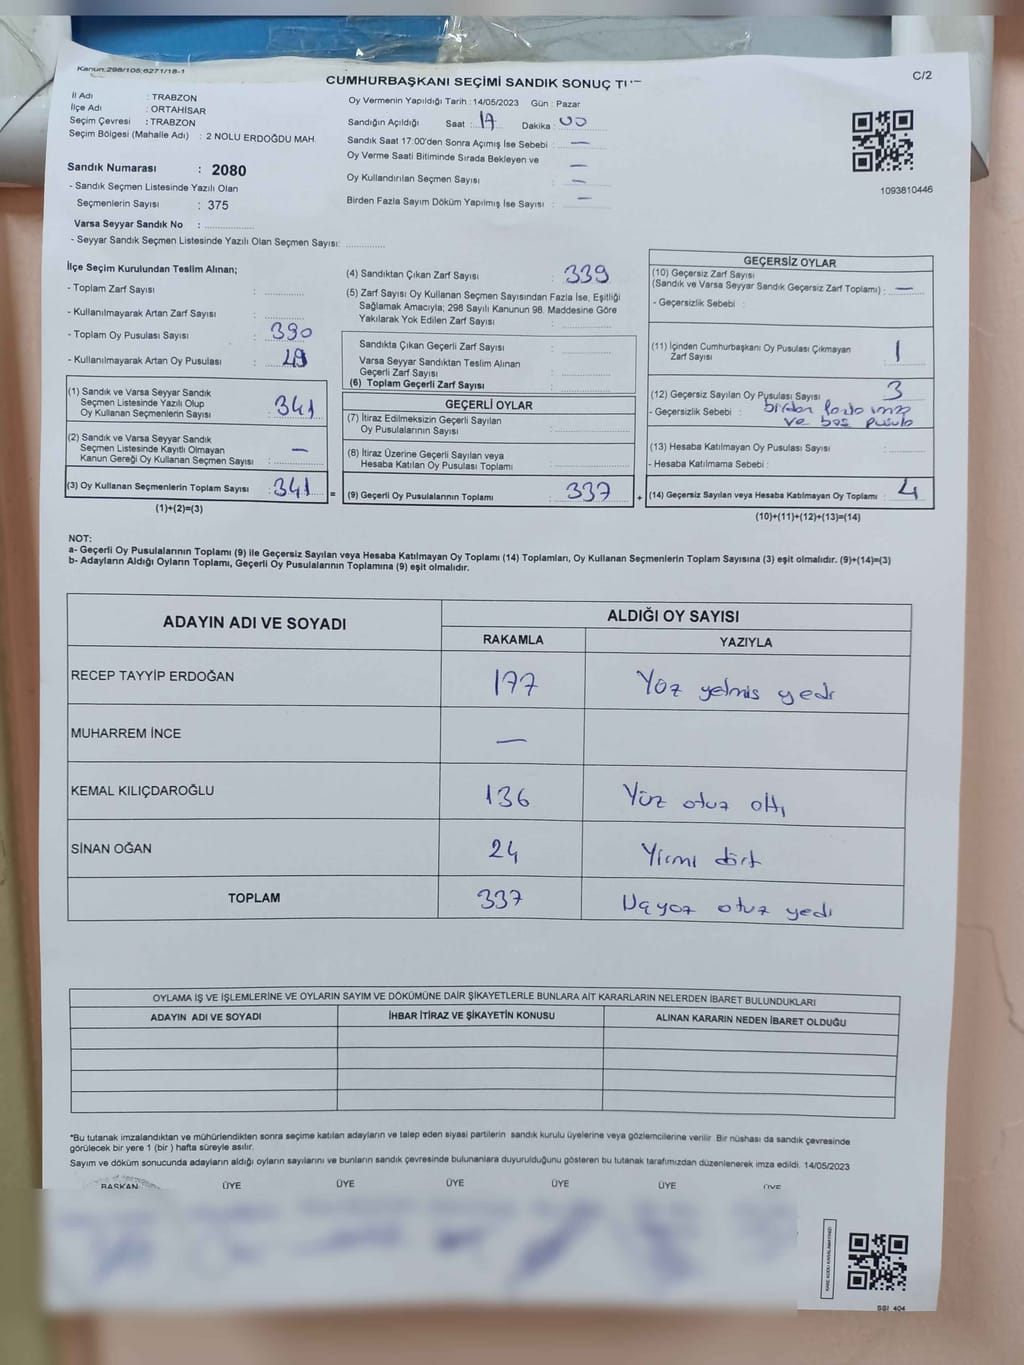 Kanun:298/105;6271/18-1
C/2
CUMHURBAŞKANI SEÇİMİ SANDIK SONUÇ
İl Adı : TRABZON
İlçe Adı : ORTAHİSAR
Seçim Çevresi : TRABZON
Seçim Bölgesi (Mahalle Adı) : 2 NOLU ERDOĞDU MAH.
Sandık Numarası : 2080
- Sandık Seçmen Listesinde Yazılı Olan
Seçmenlerin Sayısı : 375
Varsa Seyyar Sandık No : ..............
- Seyyar Sandık Seçmen Listesinde Yazılı Olan Seçmen Sayısı: ............
Oy Vermenin Yapıldığı Tarih : 14/05/2023 Gün : Pazar
Sandığın Açıldığı Saat : 17 Dakika : 00
Sandık Saat 17:00'den Sonra Açımış İse Sebebi : —
Oy Verme Saati Bitiminde Sırada Bekleyen ve —
Oy Kullandırılan Seçmen Sayısı : —
Birden Fazla Sayım Döküm Yapılmış İse Sayısı : —
1093810446
İlçe Seçim Kurulundan Teslim Alınan;
- Toplam Zarf Sayısı : ............
- Kullanılmayarak Artan Zarf Sayısı : ............
- Toplam Oy Pusulası Sayısı : 390
- Kullanılmayarak Artan Oy Pusulası : 49
(1) Sandık ve Varsa Seyyar Sandık
Seçmen Listesinde Yazılı Olup
Oy Kullanan Seçmenlerin Sayısı : 341
(2) Sandık ve Varsa Seyyar Sandık
Seçmen Listesinde Kayıtlı Olmayan
Kanun Gereği Oy Kullanan Seçmen Sayısı : —
(3) Oy Kullanan Seçmenlerin Toplam Sayısı : 341 =
(1)+(2)=(3)
(4) Sandıktan Çıkan Zarf Sayısı : 339
(5) Zarf Sayısı Oy Kullanan Seçmen Sayısından Fazla İse, Eşitliği
Sağlamak Amacıyla; 298 Sayılı Kanunun 98. Maddesine Göre
Yakılarak Yok Edilen Zarf Sayısı : ............
Sandıkta Çıkan Geçerli Zarf Sayısı : ............
Varsa Seyyar Sandıktan Teslim Alınan
Geçerli Zarf Sayısı : ............
(6) Toplam Geçerli Zarf Sayısı : ............
GEÇERLİ OYLAR
(7) İtiraz Edilmeksizin Geçerli Sayılan
Oy Pusulalarının Sayısı : ............
(8) İtiraz Üzerine Geçerli Sayılan veya
Hesaba Katılan Oy Pusulası Toplamı : ............
(9) Geçerli Oy Pusulalarının Toplamı : 337 +
GEÇERSİZ OYLAR
(10) Geçersiz Zarf Sayısı
(Sandık ve Varsa Seyyar Sandık Geçersiz Zarf Toplamı) : —
- Geçersizlik Sebebi :
(11) İçinden Cumhurbaşkanı Oy Pusulası Çıkmayan
Zarf Sayısı : 1
(12) Geçersiz Sayılan Oy Pusulası Sayısı : 3
- Geçersizlik Sebebi : birden fazla imza
ve boş pusula
(13) Hesaba Katılmayan Oy Pusulası Sayısı : ............
- Hesaba Katılmama Sebebi :
(14) Geçersiz Sayılan veya Hesaba Katılmayan Oy Toplamı : 4
(10)+(11)+(12)+(13)=(14)
NOT:
a- Geçerli Oy Pusulalarının Toplamı (9) ile Geçersiz Sayılan veya Hesaba Katılmayan Oy Toplamı (14) Toplamları, Oy Kullanan Seçmenlerin Toplam Sayısına (3) eşit olmalıdır. (9)+(14)=(3)
b- Adayların Aldığı Oyların Toplamı, Geçerli Oy Pusulalarının Toplamına (9) eşit olmalıdır.
ADAYIN ADI VE SOYADI ALDIĞI OY SAYISI
RAKAMLA YAZIYLA
RECEP TAYYİP ERDOĞAN 177 Yüz yetmiş yedi
MUHARREM İNCE —
KEMAL KILIÇDAROĞLU 136 Yüz otuz altı
SİNAN OĞAN 24 Yirmi dört
TOPLAM 337 Üçyüz otuz yedi
OYLAMA İŞ VE İŞLEMLERİNE VE OYLARIN SAYIM VE DÖKÜMÜNE DAİR ŞİKAYETLERLE BUNLARA AİT KARARLARIN NELERDEN İBARET BULUNDUKLARI
ADAYIN ADI VE SOYADI İHBAR İTİRAZ VE ŞİKAYETİN KONUSU ALINAN KARARIN NEDEN İBARET OLDUĞU
*Bu tutanak imzalandıktan ve mühürlendikten sonra seçime katılan adayların ve talep eden siyasi partilerin sandık kurulu üyelerine veya gözlemcilerine verilir. Bir nüshası da sandık çevresinde
görülecek bir yere 1 (bir ) hafta süreyle asılır.
Sayım ve döküm sonucunda adayların aldığı oyların sayılarını ve bunların sandık çevresinde bulunanlara duyurulduğunu gösteren bu tutanak tarafımızdan düzenlenerek imza edildi. 14/05/2023
BAŞKAN ÜYE ÜYE ÜYE ÜYE ÜYE ÜYE
SSI_404